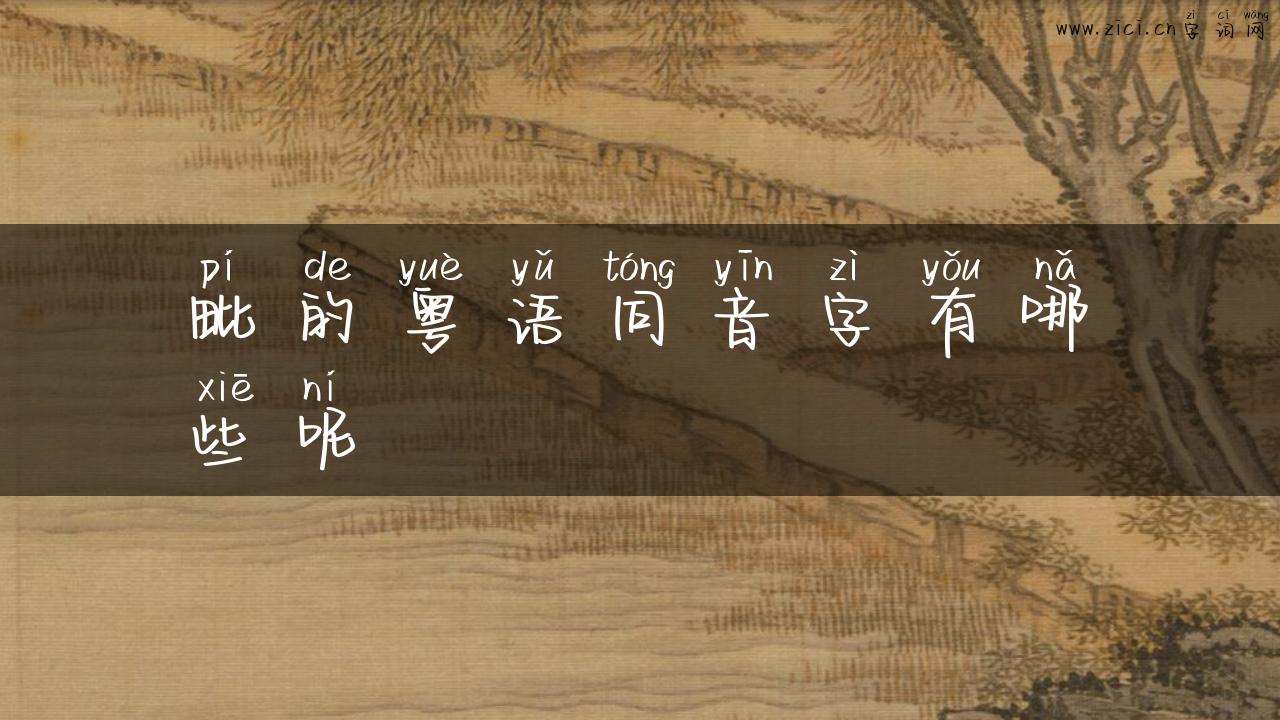 zì cí wǎng
www.zici.cn字词网
pí de yuè yǔ tóng yīn zì yǒu nǎ
毗的粤语同音字有哪
xiē ní
些呢